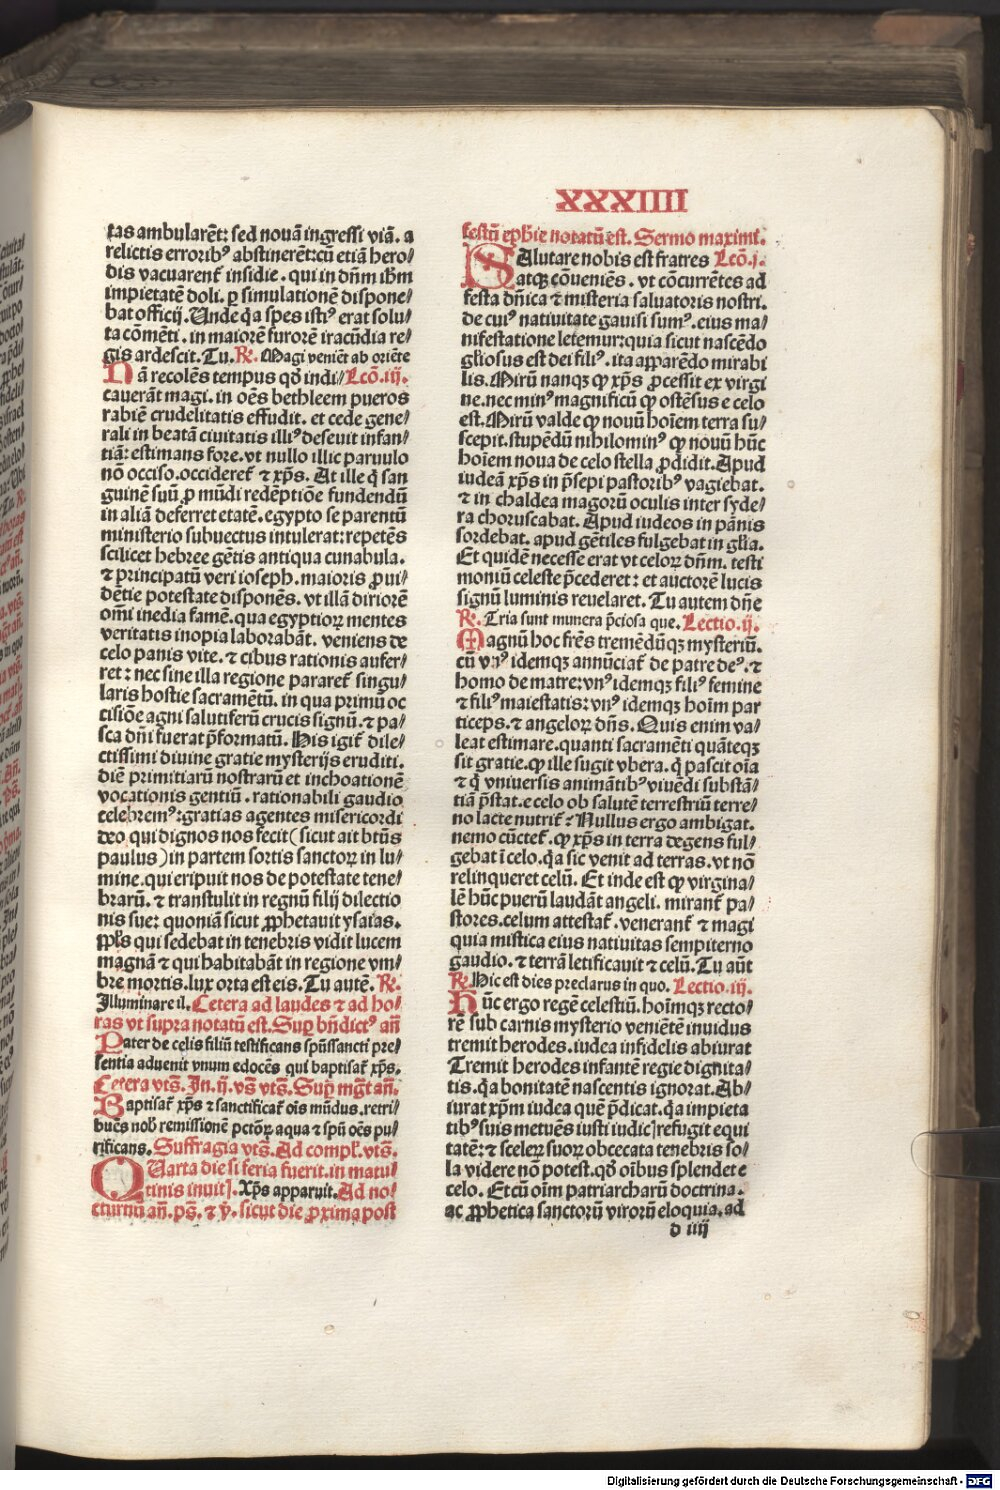 XXXIIII
tas ambularēt: sed nouā ingressi viā. a
relictis erroribꝰ abstinerēt: cū etiā hero/
dis vacuarent̄ insidie. qui in dn̄m ihm̄
impietatē doli. ꝑ simulationē dispone/
bat officij. Unde q̄a spes istiꝰ erat solu/
ta cōmēti. in maiorē furorē iracūdia re/
gis ardescit. Tu. ℟. Magi veniēt ab oriēte
Nā recolēs tempus qd̄ indi/ Lcō.iij.
cauerāt magi. in oēs bethleem pueros
rabiē crudelitatis effudit. et cede gene/
rali in beatā ciuitatis illiꝰ deseuit infan/
tiā: estimans fore. vt nullo illic paruulo
nō occiso. occideret̄ ⁊ xp̄s. At ille q̄ san
guinē suū ꝓ mūdi redēptiōe fundendū
in aliā deferret etatē. egypto se parentū
ministerio subuectus intulerat: repetēs
scilicet hebree gētis antiqua cunabula.
⁊ principatū veri ioseph. maioris ꝓui/
dētie potestate disponēs. vt illā diriorē
om̄i inedia famē. qua egyptioꝝ mentes
veritatis inopia laborabāt. veniens de
celo panis vite. ⁊ cibus rationis aufer/
ret: nec sine illa regione pararet̄ singu/
laris hostie sacramētū. in qua primū oc
cisiōe agni salutiferū crucis signū. ⁊ pa/
sca dn̄i fuerat p̄formatū. His igit̄ dile/
ctissimi diuine gratie mysterijs eruditi.
diē primitiarū nostrarū et inchoationē
vocationis gentiū. rationabili gaudio
celebremꝰ: gratias agentes misericordi
deo qui dignos nos fecit (sicut ait bt̄us
paulus) in partem sortis sanctoꝝ in lu/
mine. qui eripuit nos de potestate tene/
brarū. ⁊ transtulit in regnū filij dilectio
nis sue: quoniā sicut ꝓphetauit ysaias.
ppl̄s qui sedebat in tenebris vidit lucem
magnā ⁊ qui habitabāt in regione vm/
bre mortis. lux orta est eis. Tu autē. ℟.
Illuminare il. Cetera ad laudes ⁊ ad ho/
ras vt supra notatū est. Sup̄ bn̄dictꝰ an̄
Pater de celis filiū testificans spūssancti pre/
sentia aduenit vnum edocēs qui baptisat̄ xp̄s.
Cetera vts̄. In.ij. vs̄ vts̄. Sup̄ mgt̄ an̄.
Baptisat̄ xp̄s ⁊ sanctificat̄ ois mūdus. retri/
buēs nob̄ remissionē pctōꝝ aqua ⁊ spū oēs pu/
rificans. Suffragia vts̄. Ad compl̄. vts̄.
QUarta die si feria fuerit. in matu/
tinis inuit]. Xp̄s apparuit. Ad no/
cturnū an̄. ps̄. ⁊ v̄. sicut die ꝓxima post
festū epbīe notatū est. Sermo maximi.
SAlutare nobis est fratres Lcō.j.
atqꝫ cōueniēs. vt cōcurrētes ad
festa dn̄ica ⁊ misteria saluatoris nostri.
de cuiꝰ natiuitate gauisi sumꝰ. eius ma/
nifestatione letemur: quia sicut nascēdo
gl̄iosus est dei filiꝰ. ita apparēdo mirabi
lis. Mirū nanqꝫ ꝙ xp̄s ꝓcessit ex virgi
ne. nec minꝰ magnificū ꝙ ostēsus e celo
est. Mirū valde ꝙ nouū hoīem terra su/
scepit. stupēdū nihilominꝰ ꝙ nouū hūc
hoīem noua de celo stella ꝓdidit. Apud
iudeā xp̄s in p̄sepi pastoribꝰ vagiebat.
⁊ in chaldea magorū oculis inter syde/
ra choruscabat. Apud iudeos in pānis
sordebat. apud gētiles fulgebat in gl̄ia.
Et quidē necesse erat vt celoꝝ dn̄m. testi
moniū celeste p̄cederet: et auctorē lucis
signū luminis reuelaret. Tu autem dn̄e
℟. Tria sunt munera p̄ciosa que. Lectio.ij.
Magnū hoc frēs tremēdūqꝫ mysteriū.
cū vnꝰ idemqꝫ annūciat̄ de patre deꝰ. ⁊
homo de matre: vnꝰ idemqꝫ filiꝰ femine
⁊ filiꝰ maiestatis: vnꝰ idemqꝫ hoīm par
ticeps. ⁊ angeloꝝ dn̄s. Quis enim va/
leat estimare. quanti sacramēti quāteqꝫ
sit gratie. ꝙ ille sugit vbera. q̄ pascit oīa
⁊ q̄ vniuersis animātibꝰ viuēdi substā/
tiā p̄stat. e celo ob salutē terrestriū terre/
no lacte nutrit̄ ⁊ Nullus ergo ambigat.
nemo cūctet̄. ꝙ xp̄s in terra degens ful/
gebat ī celo. q̄a sic venit ad terras. vt nō
relinqueret celū. Et inde est ꝙ virgina/
lē hūc puerū laudāt angeli. mirant̄ pa/
stores. celum attestat̄. venerant̄ ⁊ magi
quia mistica eius natiuitas sempiterno
gaudio. ⁊ terrā letificauit ⁊ celū. Tu aūt
℟. Hic est dies preclarus in quo. Lectio.iij.
Hūc ergo regē celestiū. hoīmqꝫ recto/
rē sub carnis mysterio veniētē inuidus
tremit herodes. iudea infidelis abiurat
Tremit herodes infantē regie dignita/
tis. q̄a bonitatē nascentis ignorat. Ab/
iurat xp̄m iudea quē p̄dicat. q̄a impieta
tibꝰ suis metuēs iusti iudic] refugit equi
tatē: ⁊ sceleꝝ suoꝝ obcecata tenebris so/
la videre nō potest. qd̄ oībus splendet e
celo. Et cū oīm patriarcharū doctrina.
ac ꝓphetica sanctorū virorū eloquia. ad
d iiij
Digitalisierung gefördert durch die Deutsche Forschungsgemeinschaft - DFG